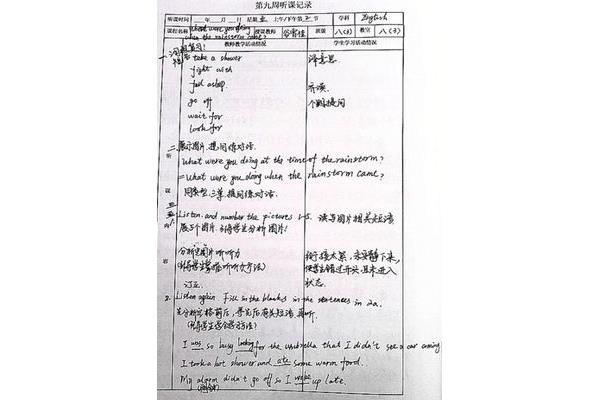 第九周听课记录
听课时间 年 月 日 星期五 上午/下午第 节 学科 English
课程名称 What were you doing when the rainstorm came? 授课教师 班级 八(3) 教室 八(3)
教师教学活动情况 学生学习活动情况
take a shower 译意思.
fight with
fall asleep. 齐读.
go off 个别提问
wait for
look for
二.展示图片,提问练对话.
What were you doing at the time of the rainstorm?
= What were you doing when the rainstorm came?
同类型,三单提问练对话.
Listen and number the pictures 1-5. 读与图片相关短语
展5个图片,引导学生分析图片!
分析完图片听听力 衔接太紧,未安静下来,
使学生错过开头,且未进入
订正 状态.
2. Listen again. Fill in the blanks in the sentences in 2a.
先分析空格前后,学完后有关短语,再听.
I was so busy looking for the umbrella that I didn't see a car coming
I took a hot shower and ate some warm food.
My alarm didn't go off so I woke up late.
听课内容